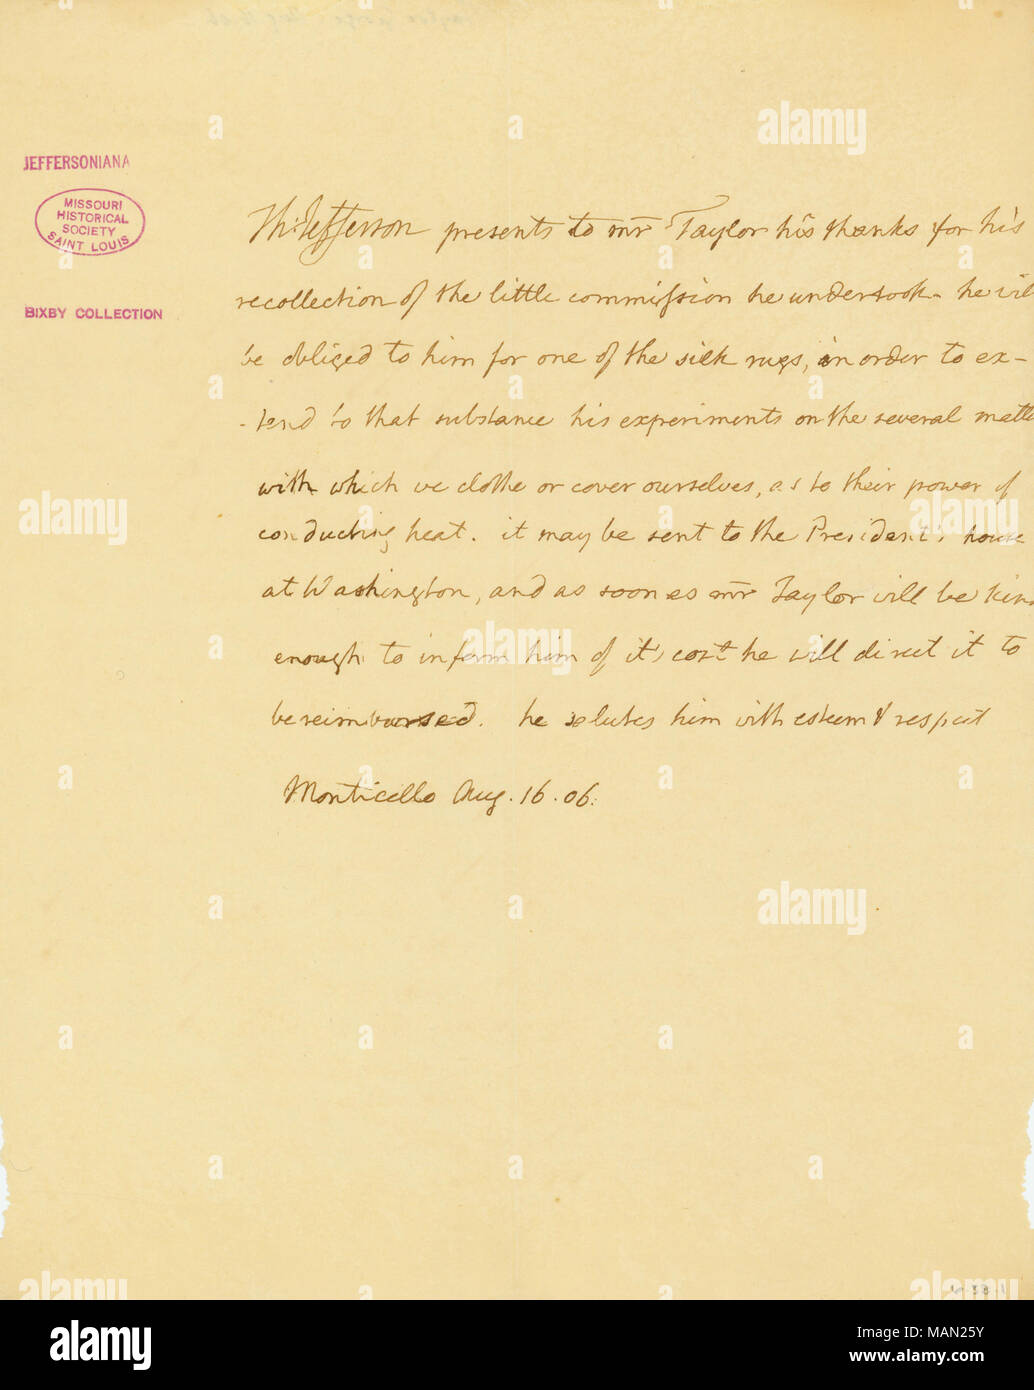 JEFFERSONIANA
MISSOURI
HISTORICAL
SOCIETY
SAINT LOUIS
BIXBY COLLECTION
Th: Jefferson presents to mr Taylor his thanks for his
recollection of the little commission he undertook. he wil
be obliged to him for one of the silk rugs, in order to ex-
-tend to that substance his experiments on the several matte
with which we clothe or cover ourselves, as to their power of
conducting heat. it may be sent to the President's house
at Washington, and as soon as mr Taylor will be kind
enough to inform him of it's cost he will direct it to
be reimbursed. he salutes him with esteem & respect
Monticello Aug. 16. 06.
alamy
alamy
Image ID: MAN25Y
www.alamy.com